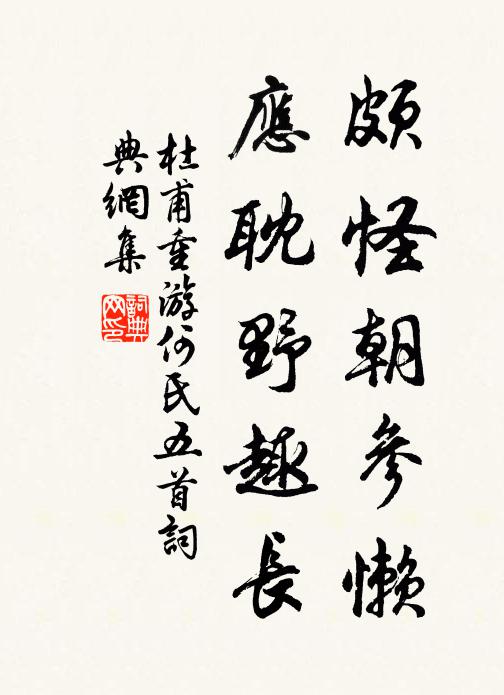 頗怪朝參懶
應耽野趣長
杜甫重游何氏五首詞
典網集
詞典網印